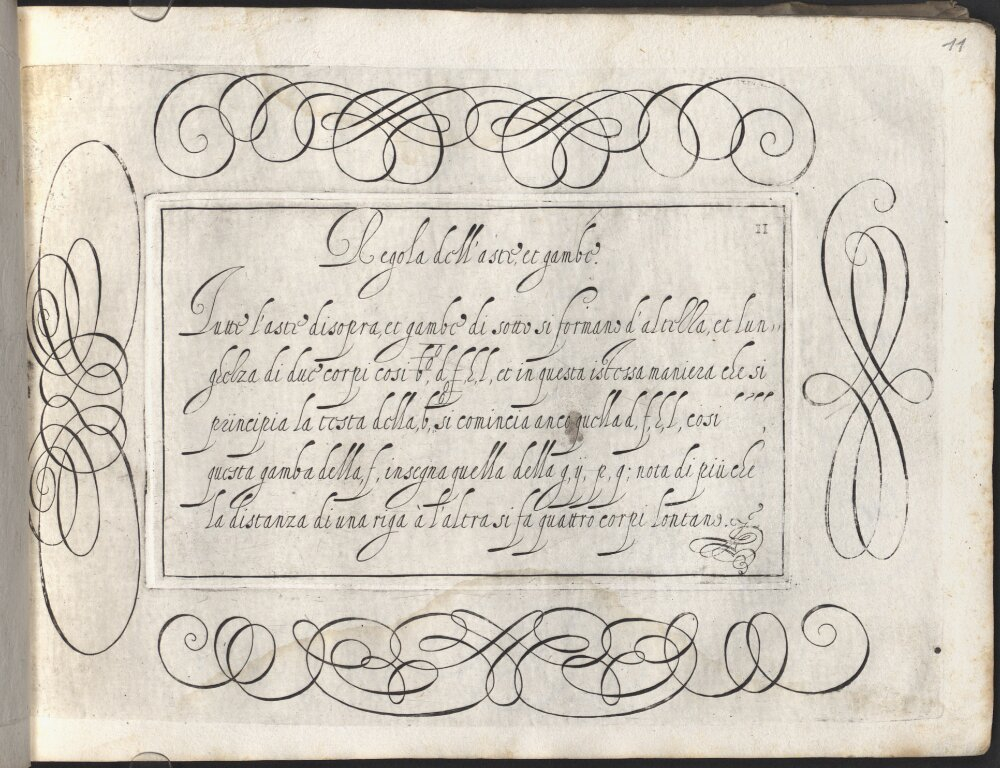 11
II
Regola dell'aste, et gambe.
Tutte l'aste di sopra, et gambe di sotto si formano d'altella, et lun,,
ghezza di due corpi cosi b, d, f, h, l, et in questa istessa maniera che si
principia la testa della, b, si comincia anco quella d, f, h, l, cosi
questa gamba della, f, insegna quella della g, y, p, q; nota di più che
la distanza di una riga à l'altra si fa quattro corpi lontano.